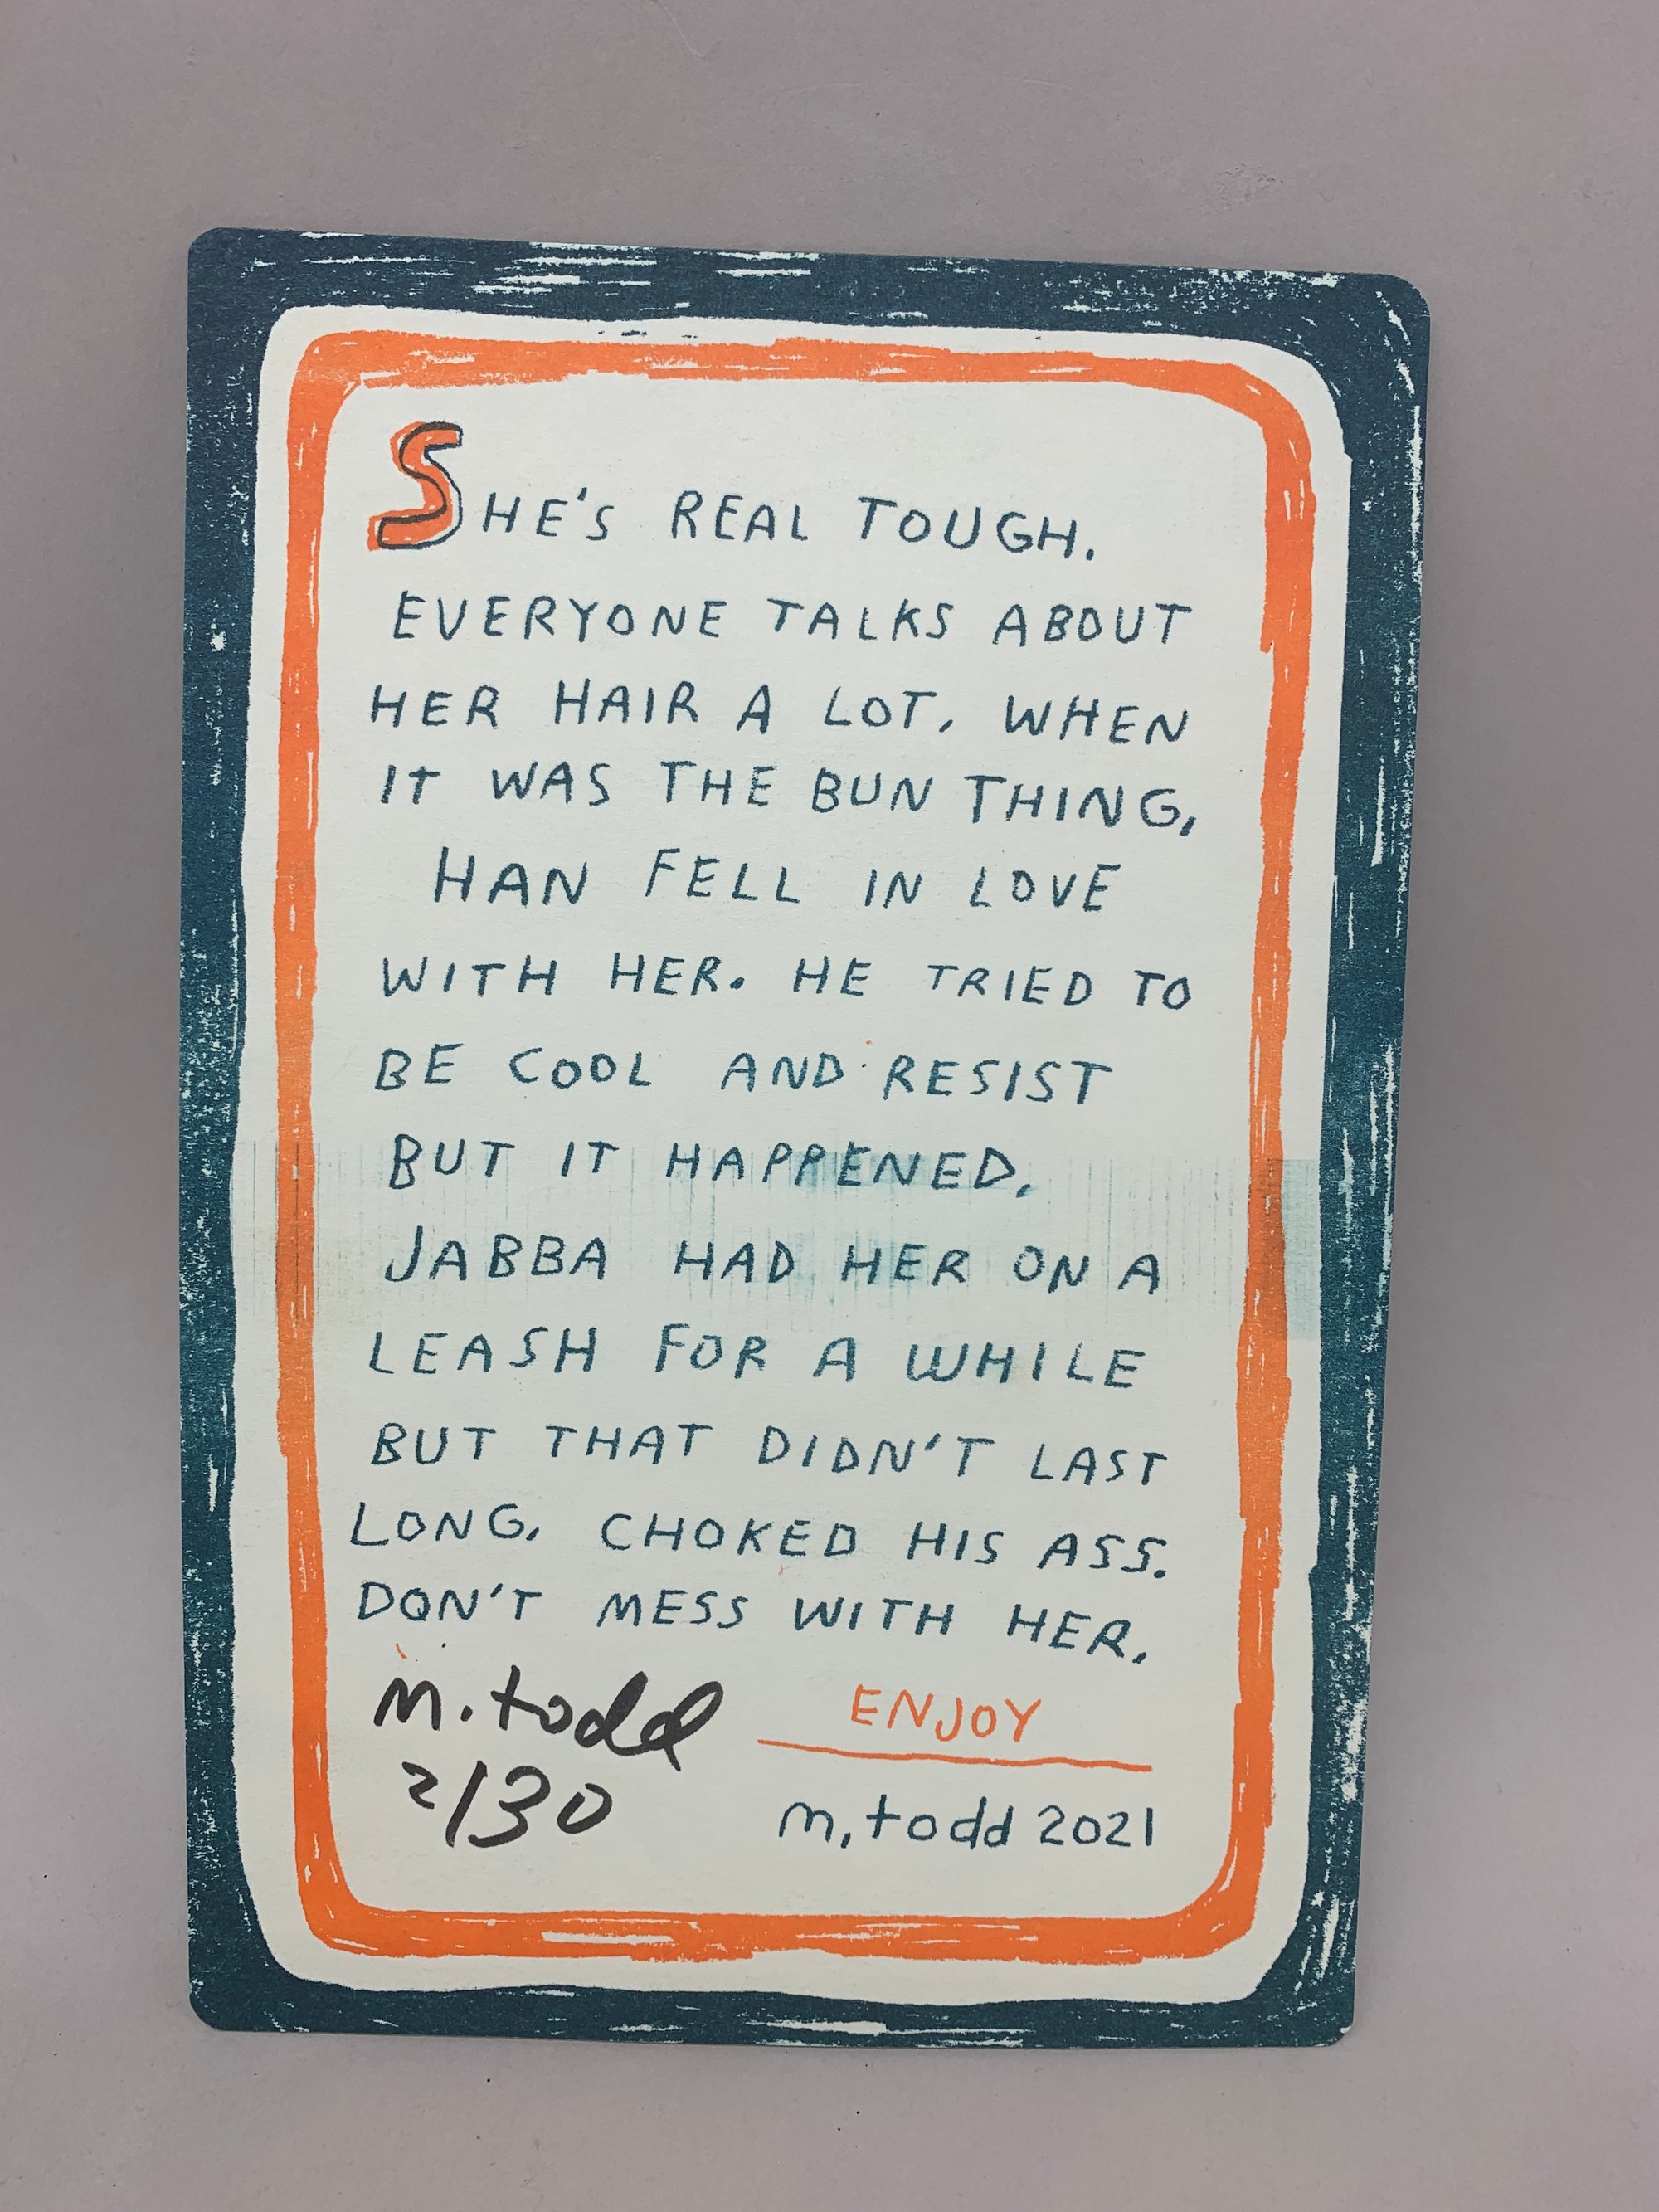 SHE'S REAL TOUGH.
EVERYONE TALKS ABOUT
HER HAIR A LOT. WHEN
IT WAS THE BUN THING,
HAN FELL IN LOVE
WITH HER. HE TRIED TO
BE COOL AND RESIST
BUT IT HAPPENED.
JABBA HAD HER ON A
LEASH FOR A WHILE
BUT THAT DIDN'T LAST
LONG. CHOKED HIS ASS.
DON'T MESS WITH HER.
m.todd
2/30
ENJOY
m.todd 2021